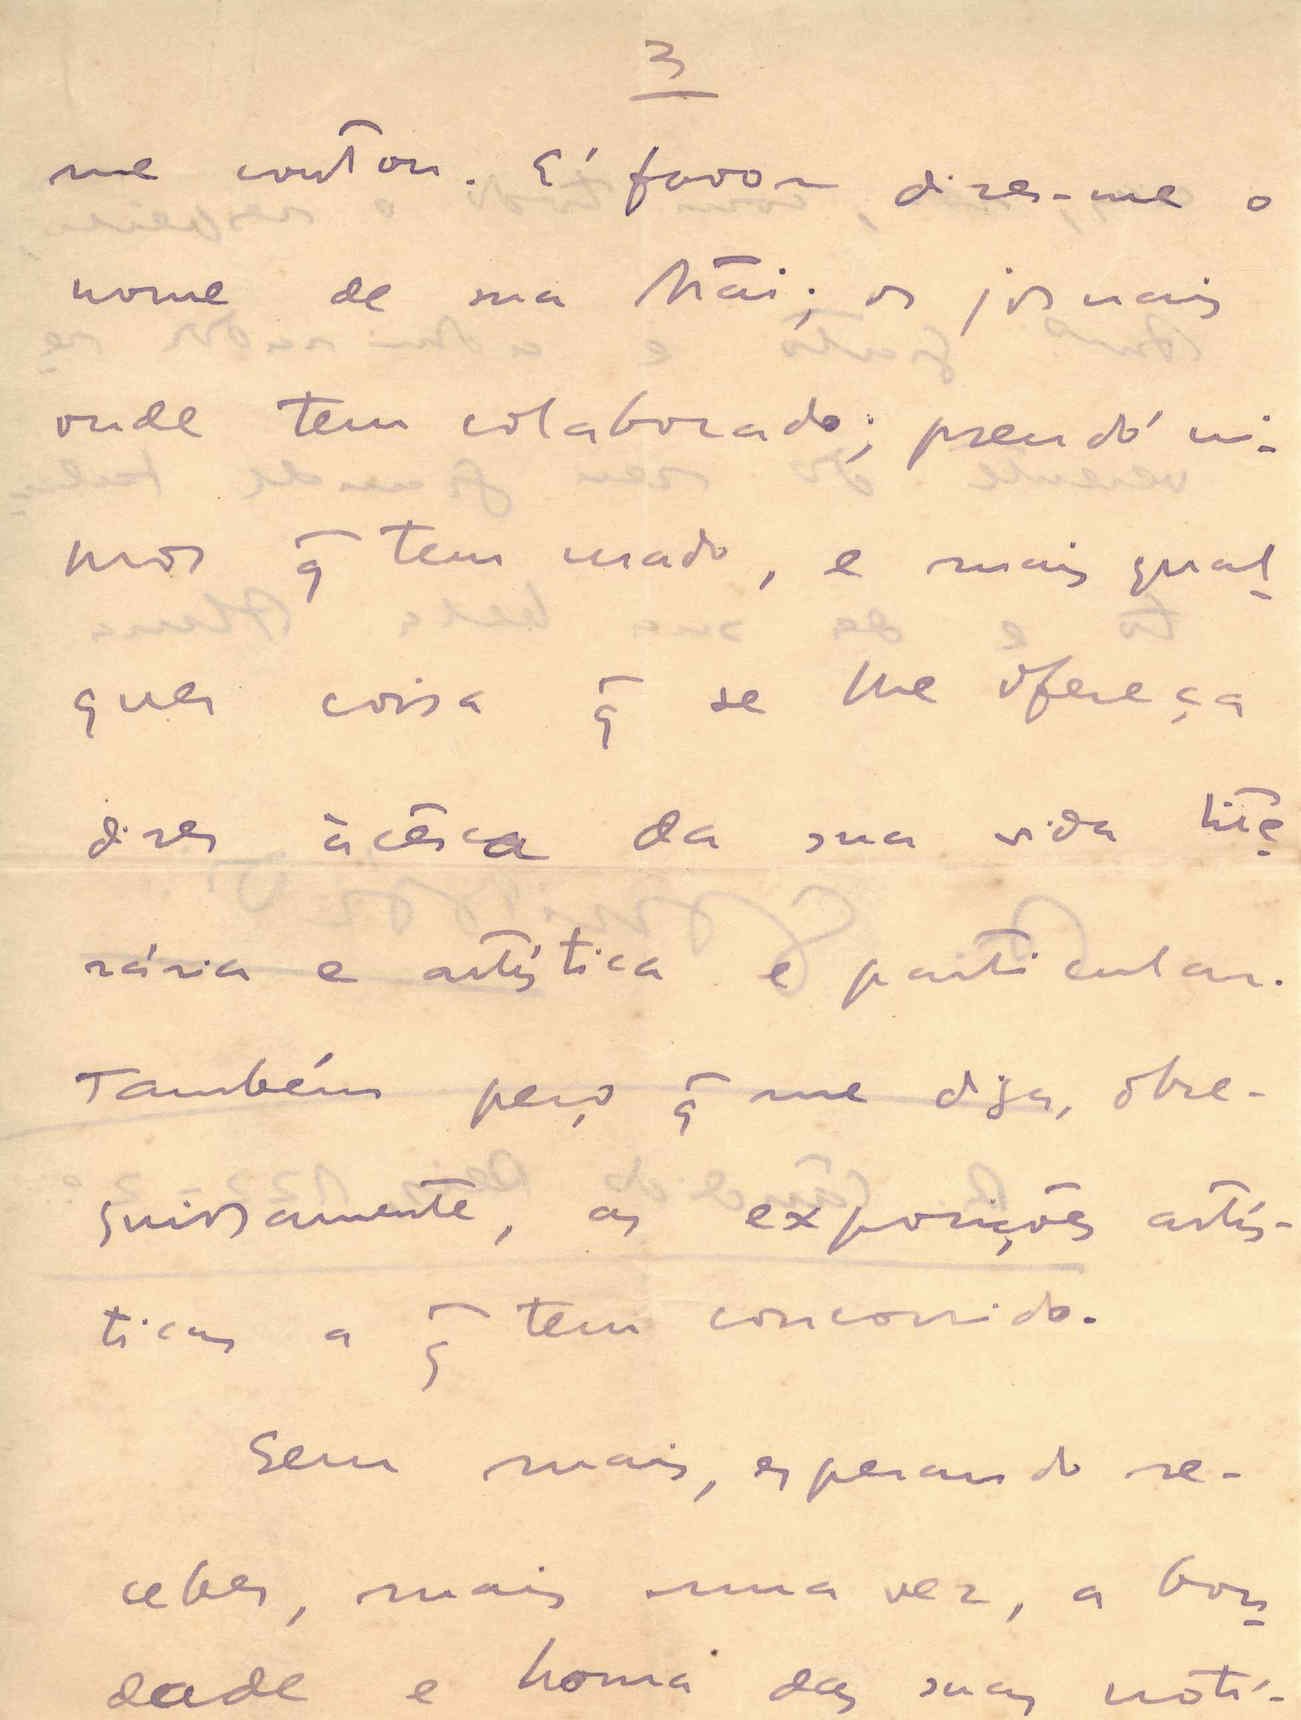 3
me contou. É favor dizer-me o
nome de sua Mãi; os jornais
onde tem colaborado; pseudóni-
mos q̄ tem usado, e mais qual-
quer coisa q̄ se lhe ofereça
dizer àcêrca da sua vida lite-
rária e artística e particular.
Também peço q̄ me diga, obse-
quiosamente, as exposições artís-
ticas a q̄ tem concorrido.
Sem mais, esperando re-
ceber, mais uma vez, a bon-
dade e honra das suas notí-